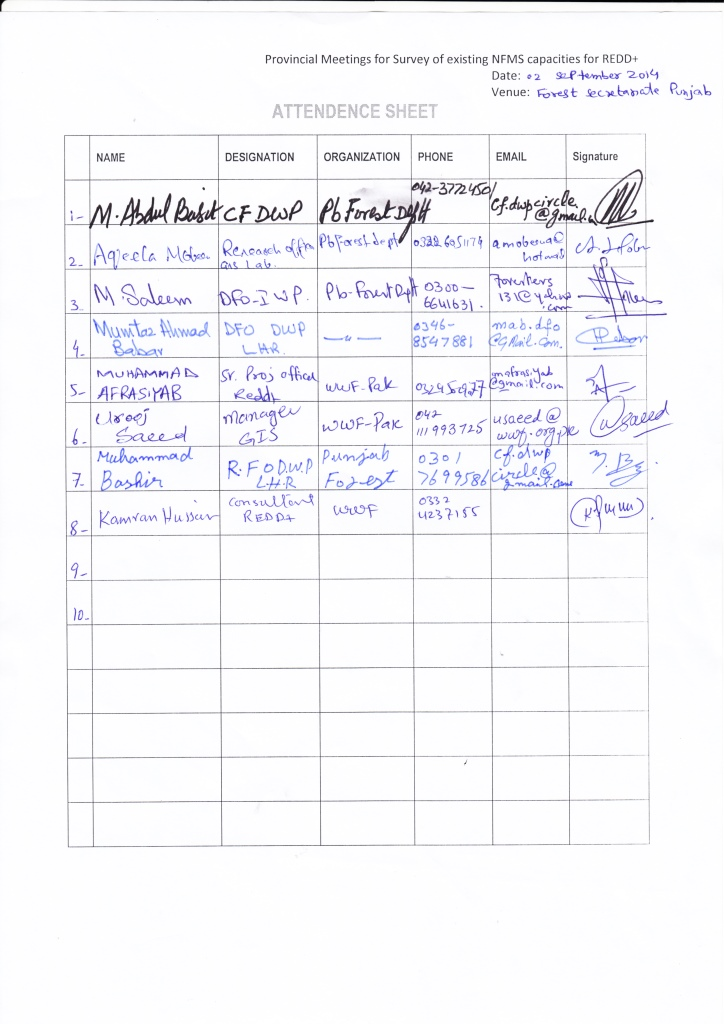 Provincial Meetings for Survey of existing NFMS capacities for REDD+
Date: 02 September 2014
Venue: Forest secretariate Punjab
ATTENDENCE SHEET
NAME DESIGNATION ORGANIZATION PHONE EMAIL Signature
1- M. Abdul Basit CF DWP Pb Forest Deptt 042-3772450 cf.dwpcircle.@gmail.
2- Aqeela Research
GIS Lab. Pb Forest dept
3- M. Saleem DFO-I WP. Pb-Forest Deptt 0300-
6641631.
4- Mumtaz Ahmad
Babar DFO DWP
LHR. —"— 0346-
8547881 mab.dfo
@Gmail.com.
5- MUHAMMAD
AFRASIYAB Sr. Proj officer
Redd+ WWF-Pak mafrasiyab
@gmail.com
6- Urooj
Saeed Manager
GIS WWF-Pak 042
111993725 usaeed@
wwf.org.pk Usaeed
7- Muhammad
Bashir R.F.O D.W.P
L.H.R Punjab
Forest 0301
7699586 cf.dwp
circle@
gmail.com
8- Kamran Hussain Consultant
REDD+ WWF 0332
4237155
9-
10-